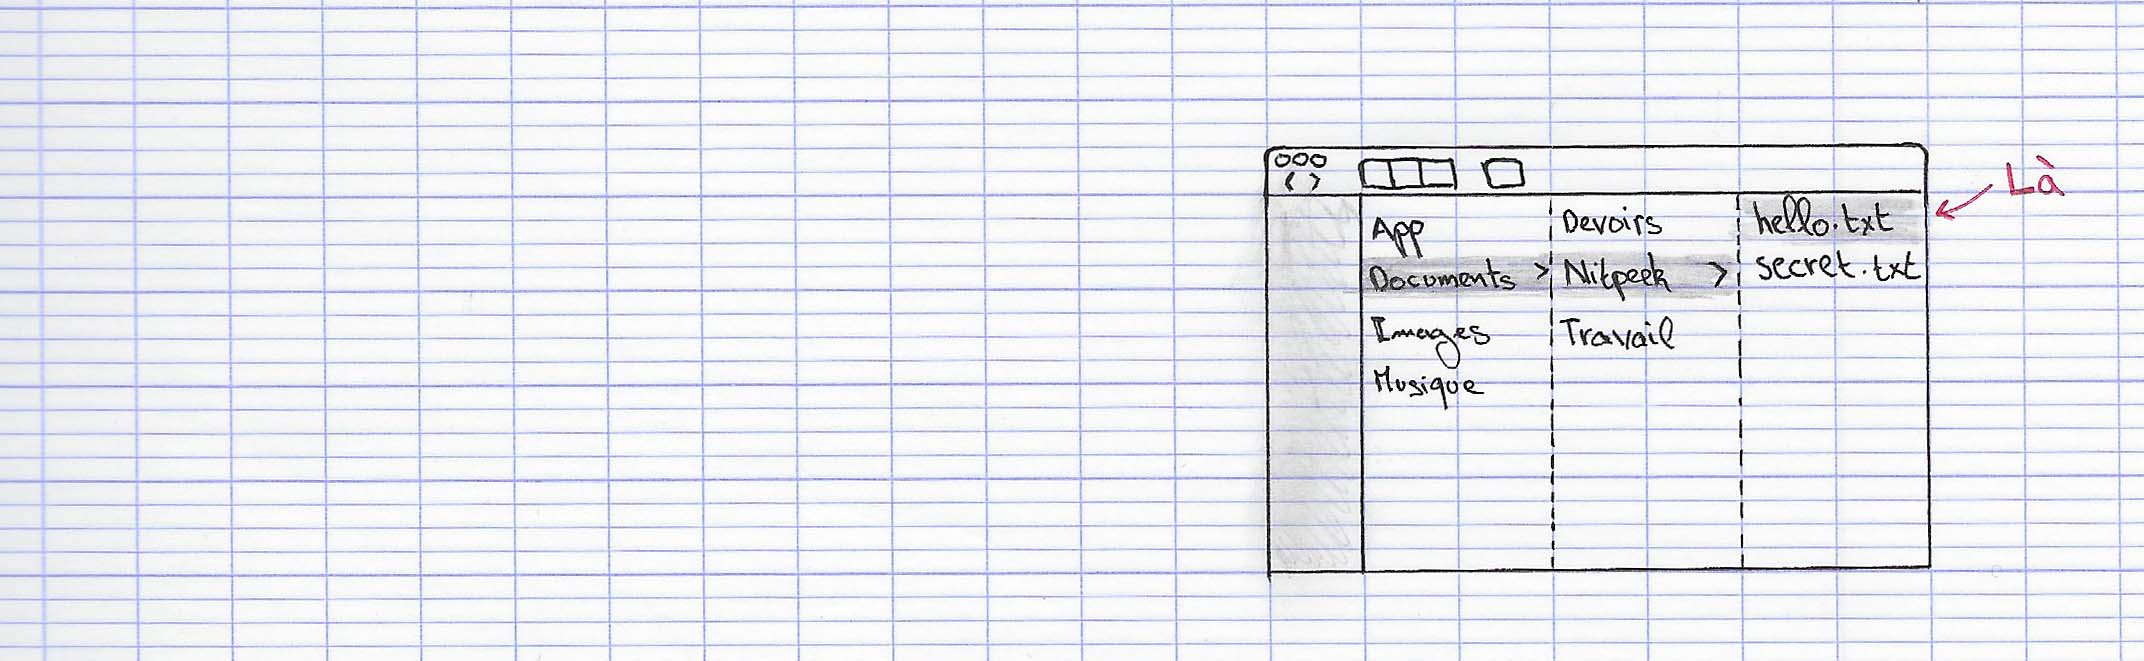 Là
App
Documents >
Images
Musique
Devoirs
Nitpeek >
Travail
hello.txt
secret.txt